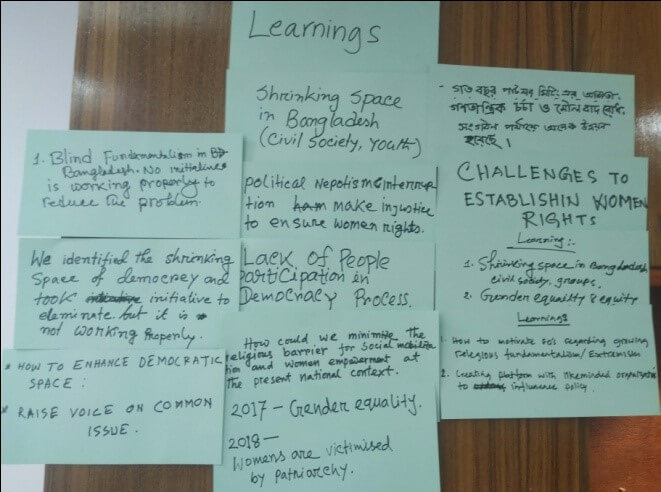 Learnings
1. Blind Fundamentalism in
Bangladesh. No initiatives
is working properly to
reduce the problem.
We identified the shrinking
Space of democracy and
took initiative to
eleminate but it is
not working Properly.
* HOW TO ENHANCE DEMOCRATIC
SPACE :
* RAISE VOICE ON COMMON
ISSUE.
Shrinking Space
in Bangladesh
(Civil Society, Youth)
political Nepotism interrup
tion make injustice
to ensure women rights.
Lack of People
participation in
Democracy Process.
How could we minimize the
religious barrier for social mobiliza
tion and women empowerment at
the present national context.
2017 - Gender equality.
2018 —
Womens are victimised
by patriarchy.
- গত বছর
গণতান্ত্রিক চর্চা ও মৌলবাদ
পর্যায়ে অনেক
হয়েছে।
CHALLENGES TO
ESTABLISHIN WOMEN
RIGHTS
Learning :-
1. Shrinking space in Bangladesh
civil society, groups.
2. Gender equality & equity
Learnings
1. How to motivate regarding growing
relegious fundamentalism/Extremism
2. Creating platform with likeminded
to influence policy.